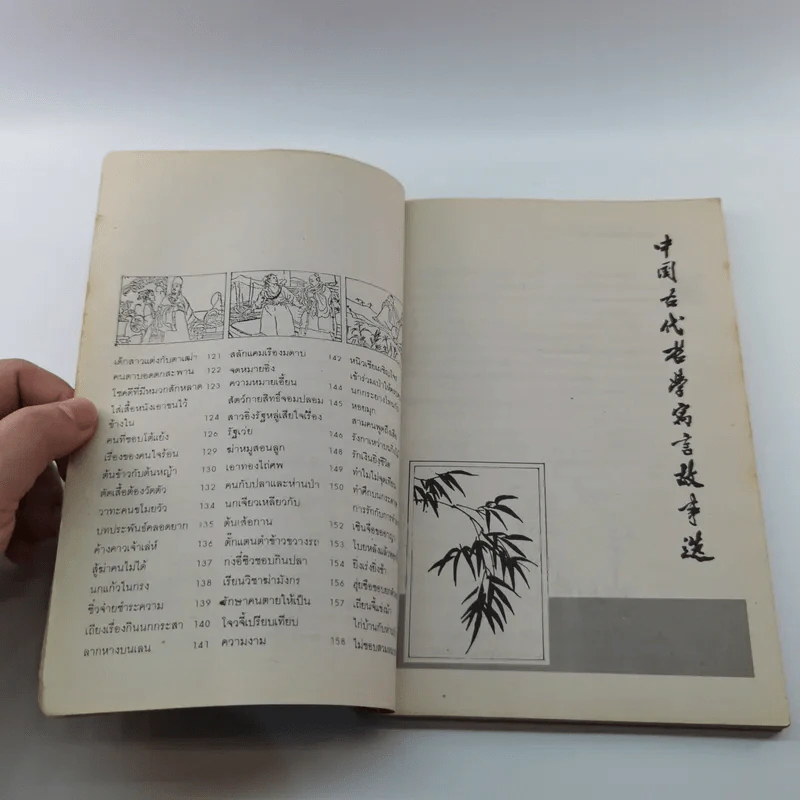 เด็กสาวแต่งกับตาเฒ่า 121
คนตาบอดตกสะพาน 122
โชคดีที่มีหมวกสักหลาด 123
ใส่เสื้อหนังเอาขนไว้
ข้างใน 124
คนที่ชอบโต้แย้ง 126
เรื่องของคนใจร้อน 129
ต้นข้าวกับต้นหญ้า 130
ตัดเสื้อต้องวัดตัว 132
วาทะคนขโมยวัว 134
บทประพันธ์คลอดยาก 135
ค้างคาวเจ้าเล่ห์ 136
สู้ฆ่าคนไม่ได้ 137
นกแก้วในกรง 138
ซิ่วจ่ายชำระความ 139
เถียงเรื่องกินนกกระสา 140
ลากหางบนเลน 141
สลักแคมเรืองมดาบ 142
จดหมายอิ่ง
ความหมายเอี้ยน 144
สัตว์กายสิทธิ์จอมปลอม 145
สาวอิ่งรัฐหลู่เสียใจเรื่อง
รัฐเว่ย 146
ฆ่าหมูสอนลูก 148
เอาทองไถ่ศพ 149
คนกับปลาและห่านป่า 150
นกเจียวเหลียวกับ
ต้นเอ้อกาน 152
ตั๊กแตนตำข้าวขวางรถ 153
กงอี๋ซิวชอบกินปลา 154
เรียนวิชาฆ่ามังกร 156
รักษาคนตายให้เป็น 157
โจวจี้เปรียบเทียบ
ความงาม 158
นกกระยาง
หอยมุก
สามคนพูดถึงเสือ
รักเงินยิ่งชีวิต
中国古代哲学寓言故事选